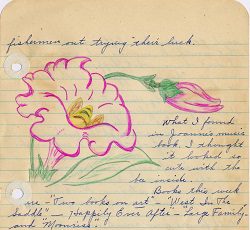 fishermen out trying their luck.
What I found
in Joanne's music
book. I thought
it looked so
cute with the
bee inside.
Books this week
are - "Two books on art" - "West In The
Saddle" - Happily Ever After - "Large Family"
and "Moonrise.